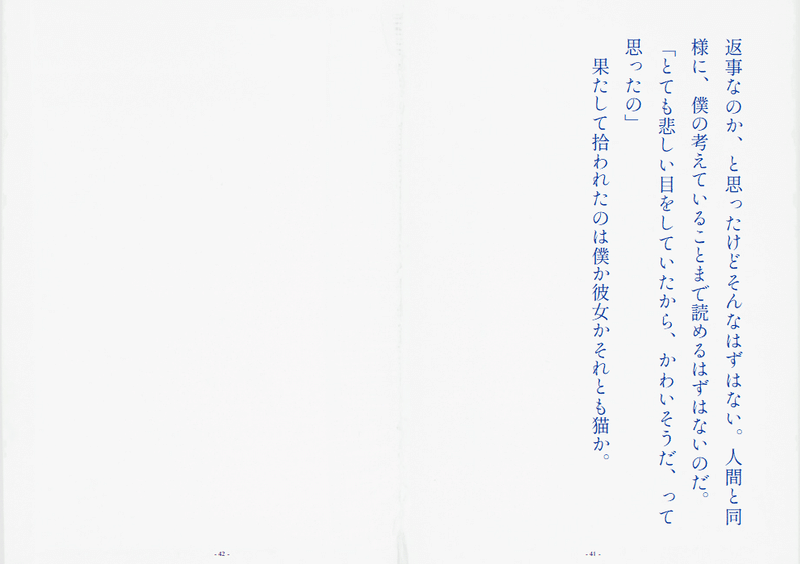 返事なのか、と思ったけどそんなはずはない。人間と同
様に、僕の考えていることまで読めるはずはないのだ。
「とても悲しい目をしていたから、かわいそうだ、って
思ったの」
果たして拾われたのは僕か彼女かそれとも猫か。
- 41 -
- 42 -